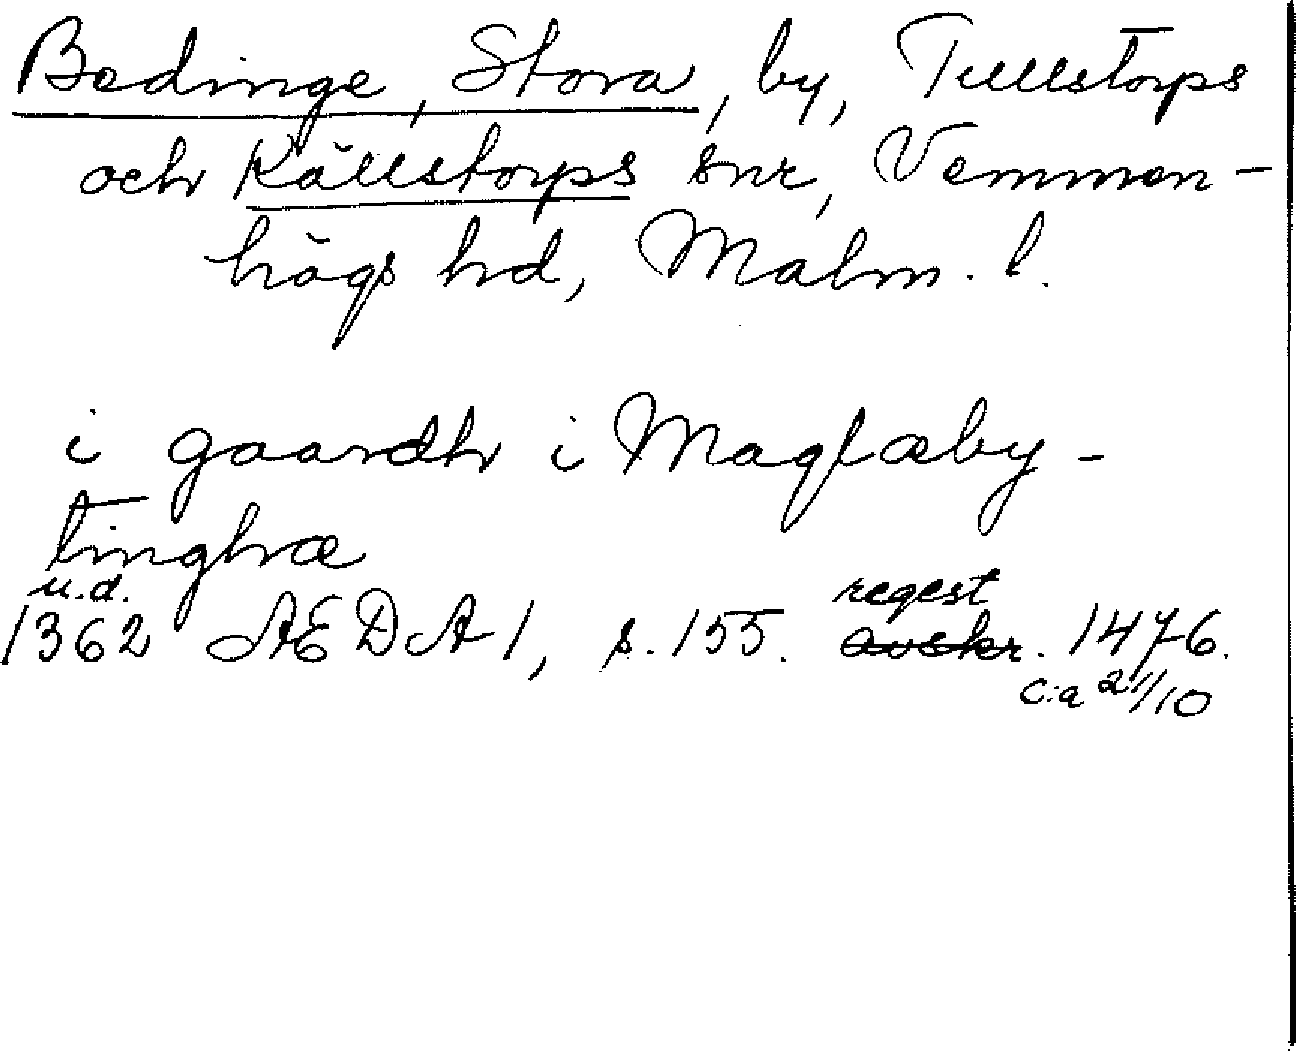 Bedinge, Stora, by, Tullstorps
och Källstorps snr, Vemmen-
högs hd, Malm. l.
i gaardh i Maglæby-
tinghæ
u.d. regest
1362 AEDA 1, s. 155. avskr. 1476.
c:a 21/10